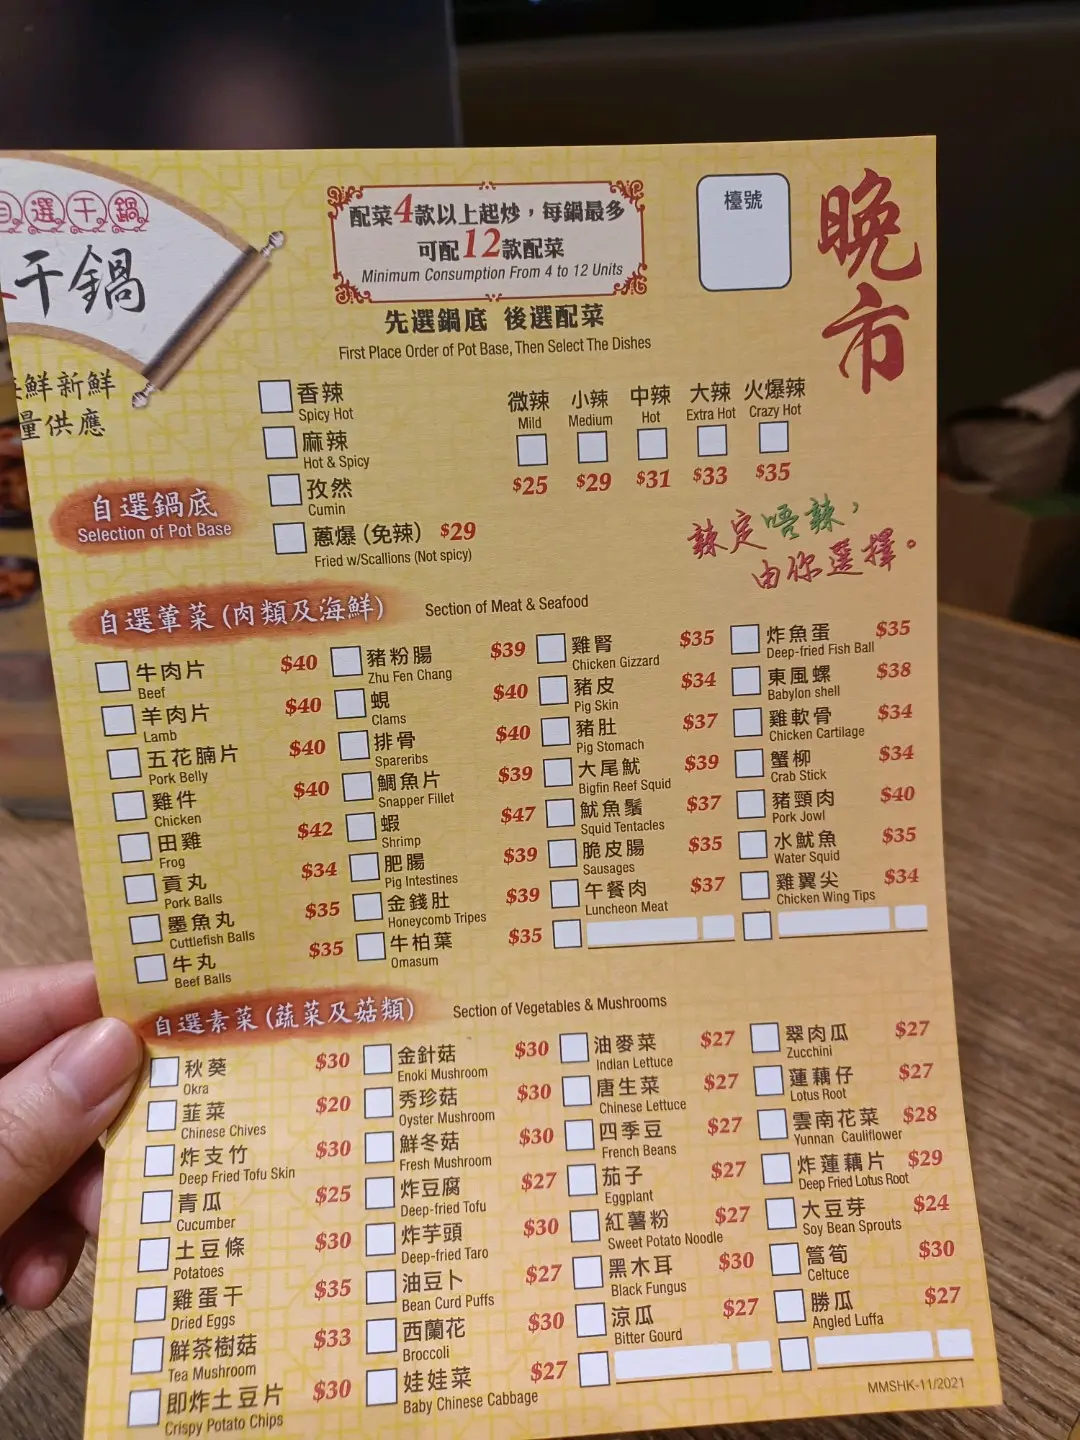 自選干鍋
干鍋
海鮮新鮮
量供應
配菜4款以上起炒，每鍋最多
可配12款配菜
Minimum Consumption From 4 to 12 Units
先選鍋底 後選配菜
First Place Order of Pot Base, Then Select The Dishes
檯號
晚市
自選鍋底
Selection of Pot Base
香辣
Spicy Hot
麻辣
Hot & Spicy
孜然
Cumin
蔥爆(免辣) $29
Fried w/Scallions (Not spicy)
微辣 小辣 中辣 大辣 火爆辣
Mild Medium Hot Extra Hot Crazy Hot
$25 $29 $31 $33 $35
辣定唔辣，
由你選擇。
自選葷菜(肉類及海鮮) Section of Meat & Seafood
牛肉片 $40
Beef
羊肉片 $40
Lamb
五花腩片 $40
Pork Belly
雞件 $40
Chicken
田雞 $42
Frog
貢丸 $34
Pork Balls
墨魚丸 $35
Cuttlefish Balls
牛丸 $35
Beef Balls
豬粉腸 $39
Zhu Fen Chang
蜆 $40
Clams
排骨 $40
Spareribs
鯛魚片 $39
Snapper Fillet
蝦 $47
Shrimp
肥腸 $39
Pig Intestines
金錢肚 $39
Honeycomb Tripes
牛柏葉 $35
Omasum
雞腎 $35
Chicken Gizzard
豬皮 $34
Pig Skin
豬肚 $37
Pig Stomach
大尾魷 $39
Bigfin Reef Squid
魷魚鬚 $37
Squid Tentacles
脆皮腸 $35
Sausages
午餐肉 $37
Luncheon Meat
炸魚蛋 $35
Deep-fried Fish Ball
東風螺 $38
Babylon shell
雞軟骨 $34
Chicken Cartilage
蟹柳 $34
Crab Stick
豬頸肉 $40
Pork Jowl
水魷魚 $35
Water Squid
雞翼尖 $34
Chicken Wing Tips
自選素菜(蔬菜及菇類) Section of Vegetables & Mushrooms
秋葵 $30
Okra
韮菜 $20
Chinese Chives
炸支竹 $30
Deep Fried Tofu Skin
青瓜 $25
Cucumber
土豆條 $30
Potatoes
雞蛋干 $35
Dried Eggs
鮮茶樹菇 $33
Tea Mushroom
即炸土豆片 $30
Crispy Potato Chips
金針菇 $30
Enoki Mushroom
秀珍菇 $30
Oyster Mushroom
鮮冬菇 $30
Fresh Mushroom
炸豆腐 $27
Deep-fried Tofu
炸芋頭 $30
Deep-fried Taro
油豆卜 $27
Bean Curd Puffs
西蘭花 $30
Broccoli
娃娃菜 $27
Baby Chinese Cabbage
油麥菜 $27
Indian Lettuce
唐生菜 $27
Chinese Lettuce
四季豆 $27
French Beans
茄子 $27
Eggplant
紅薯粉 $27
Sweet Potato Noodle
黑木耳 $30
Black Fungus
涼瓜 $27
Bitter Gourd
翠肉瓜 $27
Zucchini
蓮藕仔 $27
Lotus Root
雲南花菜 $28
Yunnan Cauliflower
炸蓮藕片 $29
Deep Fried Lotus Root
大豆芽 $24
Soy Bean Sprouts
萵筍 $30
Celtuce
勝瓜 $27
Angled Luffa
MMSHK-11/2021